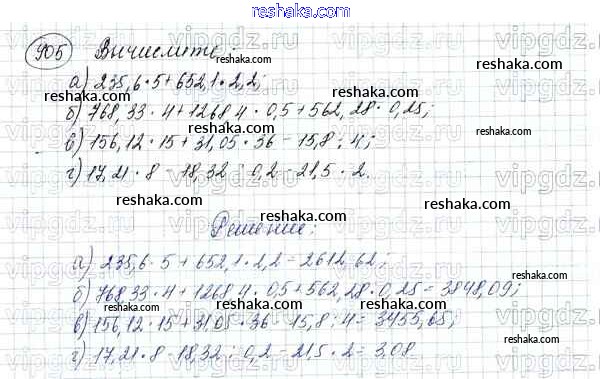 reshaka.com
905 Вычислите:
reshaka.com
а) 235,6 · 5 + 652,1 · 2,2;
reshaka.com
б) 768,33 · 4 + 1268,4 · 0,5 + 562,28 · 0,25;
reshaka.com
в) 156,12 · 15 + 31,05 · 36 - 15,8 : 4;
reshaka.com
г) 17,21 · 8 - 18,32 : 0,2 - 21,5 · 2.
reshaka.com
Решение:
reshaka.com
а) 235,6 · 5 + 652,1 · 2,2 = 2612,62;
reshaka.com
б) 768,33 · 4 + 1268,4 · 0,5 + 562,28 · 0,25 = 3848,09;
reshaka.com
в) 156,12 · 15 + 31,05 · 36 - 15,8 : 4 = 3455,65;
reshaka.com
г) 17,21 · 8 - 18,32 : 0,2 - 21,5 · 2 = 3,08
reshaka.com